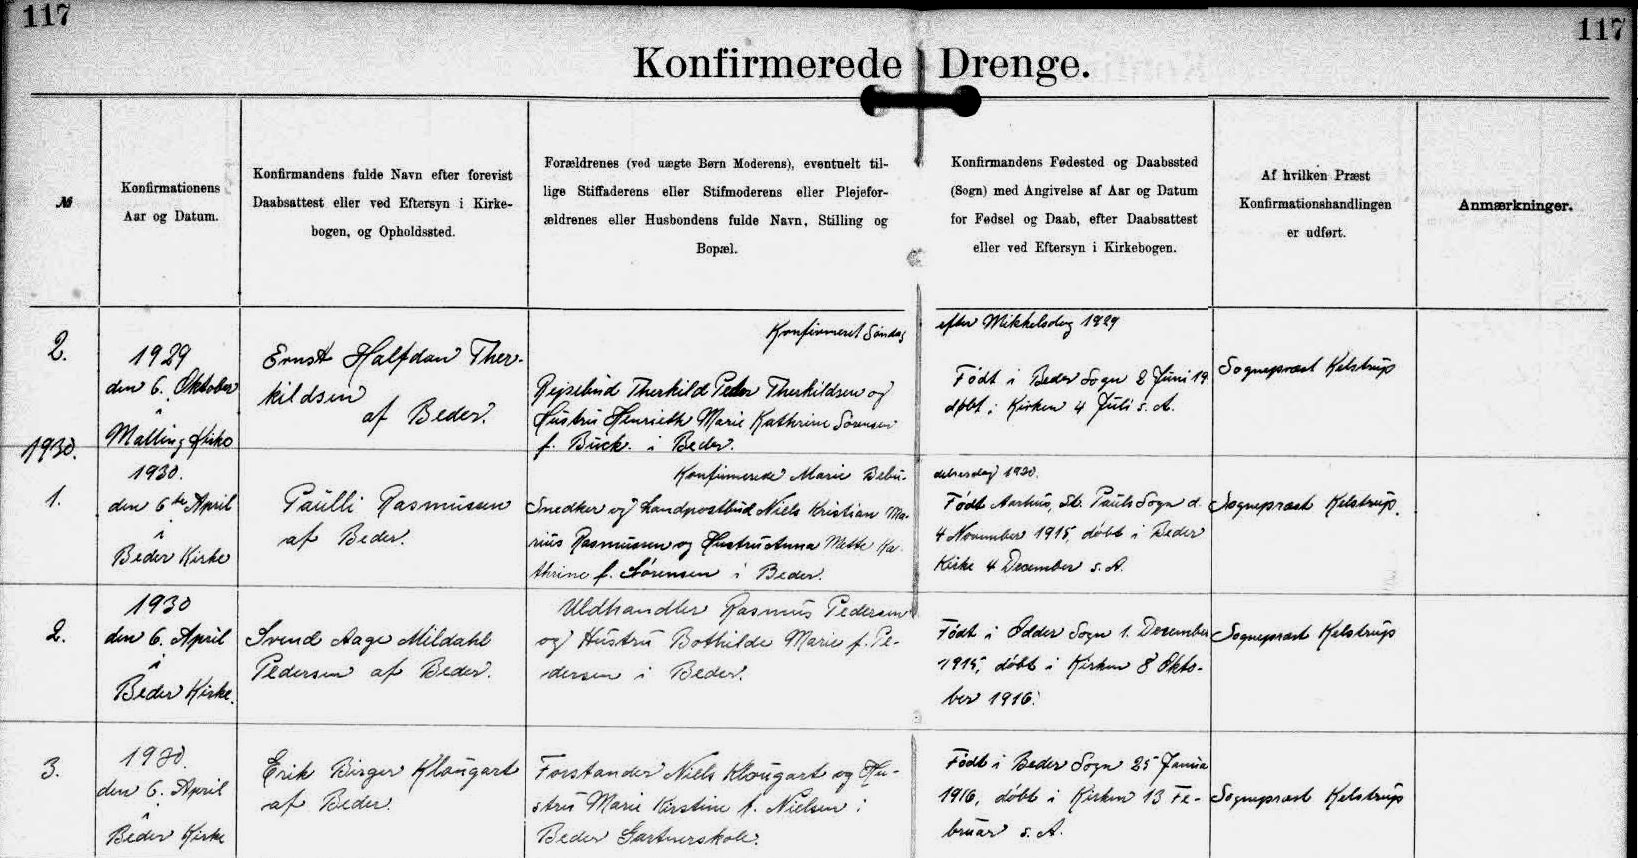 117
117
Konfirmerede Drenge.
№
Konfirmationens
Aar og Datum.
Konfirmandens fulde Navn efter forevist
Daabsattest eller ved Eftersyn i Kirke-
bogen, og Opholdssted.
Forældrenes (ved uægte Børn Moderens), eventuelt til-
lige Stiffaderens eller Stifmoderens eller Plejefor-
ældrenes eller Husbondens fulde Navn, Stilling og
Bopæl.
Konfirmandens Fødested og Daabssted
(Sogn) med Angivelse af Aar og Datum
for Fødsel og Daab, efter Daabsattest
eller ved Eftersyn i Kirkebogen.
Af hvilken Præst
Konfirmationshandlingen
er udført.
Anmærkninger.
Konfirmeret Søndag efter Mikkelsdag 1929
2.
1929
den 6. Oktober
i
Malling Kirke
Ernst Halfdan Ther-
kildsen
af Beder.
Rejsebud Therkild Peder Therkildsen og
Hustru Henriette Marie Kathrine Sørensen
f. Buck. i Beder.
Født i Beder Sogn 2 Juni 19
døbt i Kirken 4 Juli s. A.
Sognepræst Kelstrup
1930.
Konfirmerede Marie Bebu-
delsesdag 1930.
1.
1930.
den 6te April
i
Beder Kirke
Paulli Rasmussen
af Beder.
Snedker og Landpostbud Niels Kristian Ma-
rius Rasmussen og Hustru Anna Mette Ka-
thrine f. Sørensen i Beder.
Født Aarhus, St. Pauls Sogn d.
4 November 1915, døbt i Beder
Kirke 4 December s. A.
Sognepræst Kelstrup.
2.
1930
den 6. April
i
Beder Kirke.
Svend Aage Mildahl
Pedersen af Beder.
Uldhandler Rasmus Pedersen
og Hustru Bothilde Marie f. Pe-
dersen i Beder.
Født i Odder Sogn 1. December
1915, døbt i Kirken 8 Okto-
ber 1916.
Sognepræst Kelstrup
3.
1930.
den 6. April
i
Beder Kirke
Erik Birger Klougart
af Beder.
Forstander Niels Klougart og Hu-
stru Marie Kirstine f. Nielsen i
Beder Gartnerskole.
Født i Beder Sogn 25 Janua
1916, døbt i Kirken 13 Fe-
bruar s. A.
Sognepræst Kelstrup